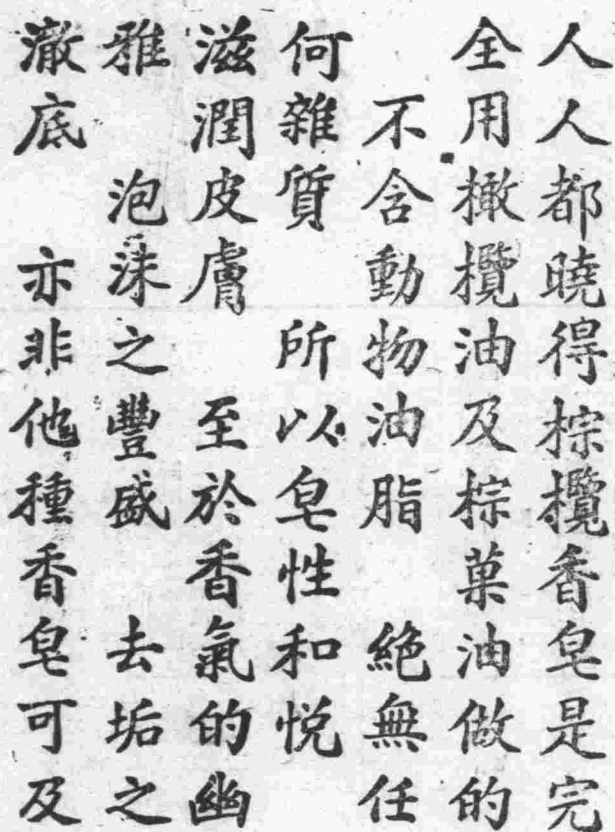 人人都曉得棕欖香皂是完
全用橄欖油及棕菓油做的
不含動物油脂 絕無任
何雜質 所以皂性和悅
滋潤皮膚 至於香氣的幽
雅 泡沫之豐盛 去垢之
澈底 亦非他種香皂可及